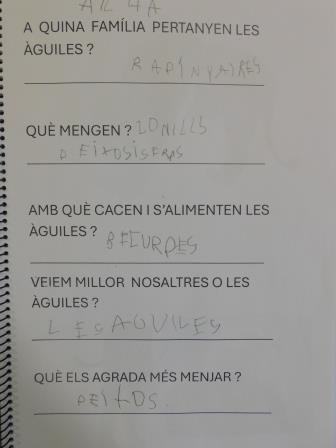 A QUINA FAMÍLIA PERTANYEN LES
ÀGUILES ?
RAPINYAIRES
QUÈ MENGEN ? CONILLS
PEIXOS I SERPS
AMB QUÈ CACEN I S'ALIMENTEN LES
ÀGUILES ?
VEIEM MILLOR NOSALTRES O LES
ÀGUILES ?
LES AGUILES
QUÈ ELS AGRADA MÉS MENJAR ?